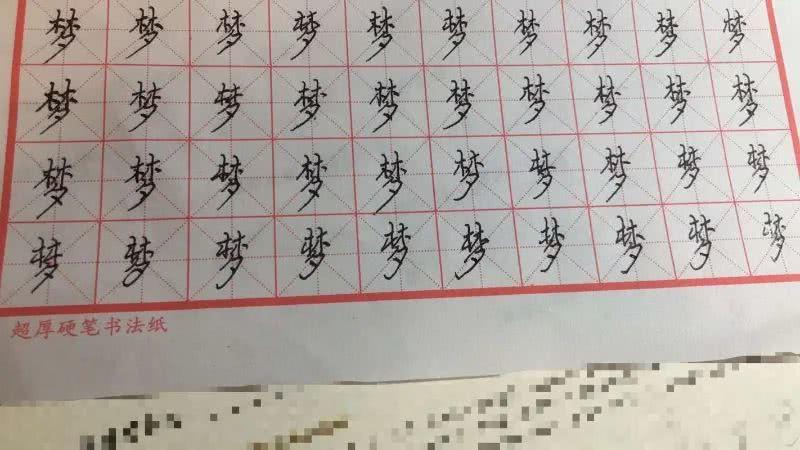 梦梦梦梦梦梦梦梦梦梦
梦梦梦梦梦梦梦梦梦梦
梦梦梦梦梦梦梦梦梦梦
梦梦梦梦梦梦梦梦梦梦
超厚硬笔书法纸